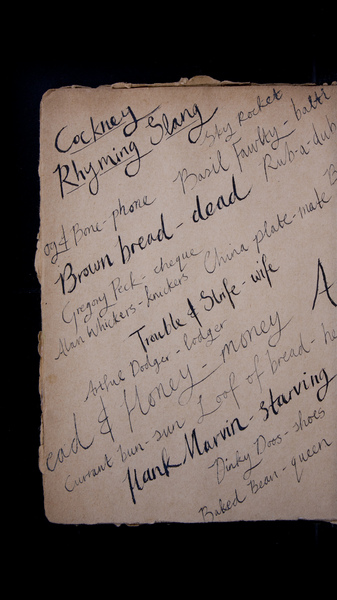 Cockney
Rhyming Slang
Sky Rocket
Basil Fawlty - balti
Rub-a-dub
og & Bone - phone
Brown bread - dead
Gregory Peck - cheque
China plate - mate
Alan Whickers - knickers
Trouble & Strife - wife
Artful Dodger - lodger
ead & Honey - money
Currant bun - sun
Loaf of bread - he
Hank Marvin - starving
Dinky Doos - shoes
Baked Bean - queen